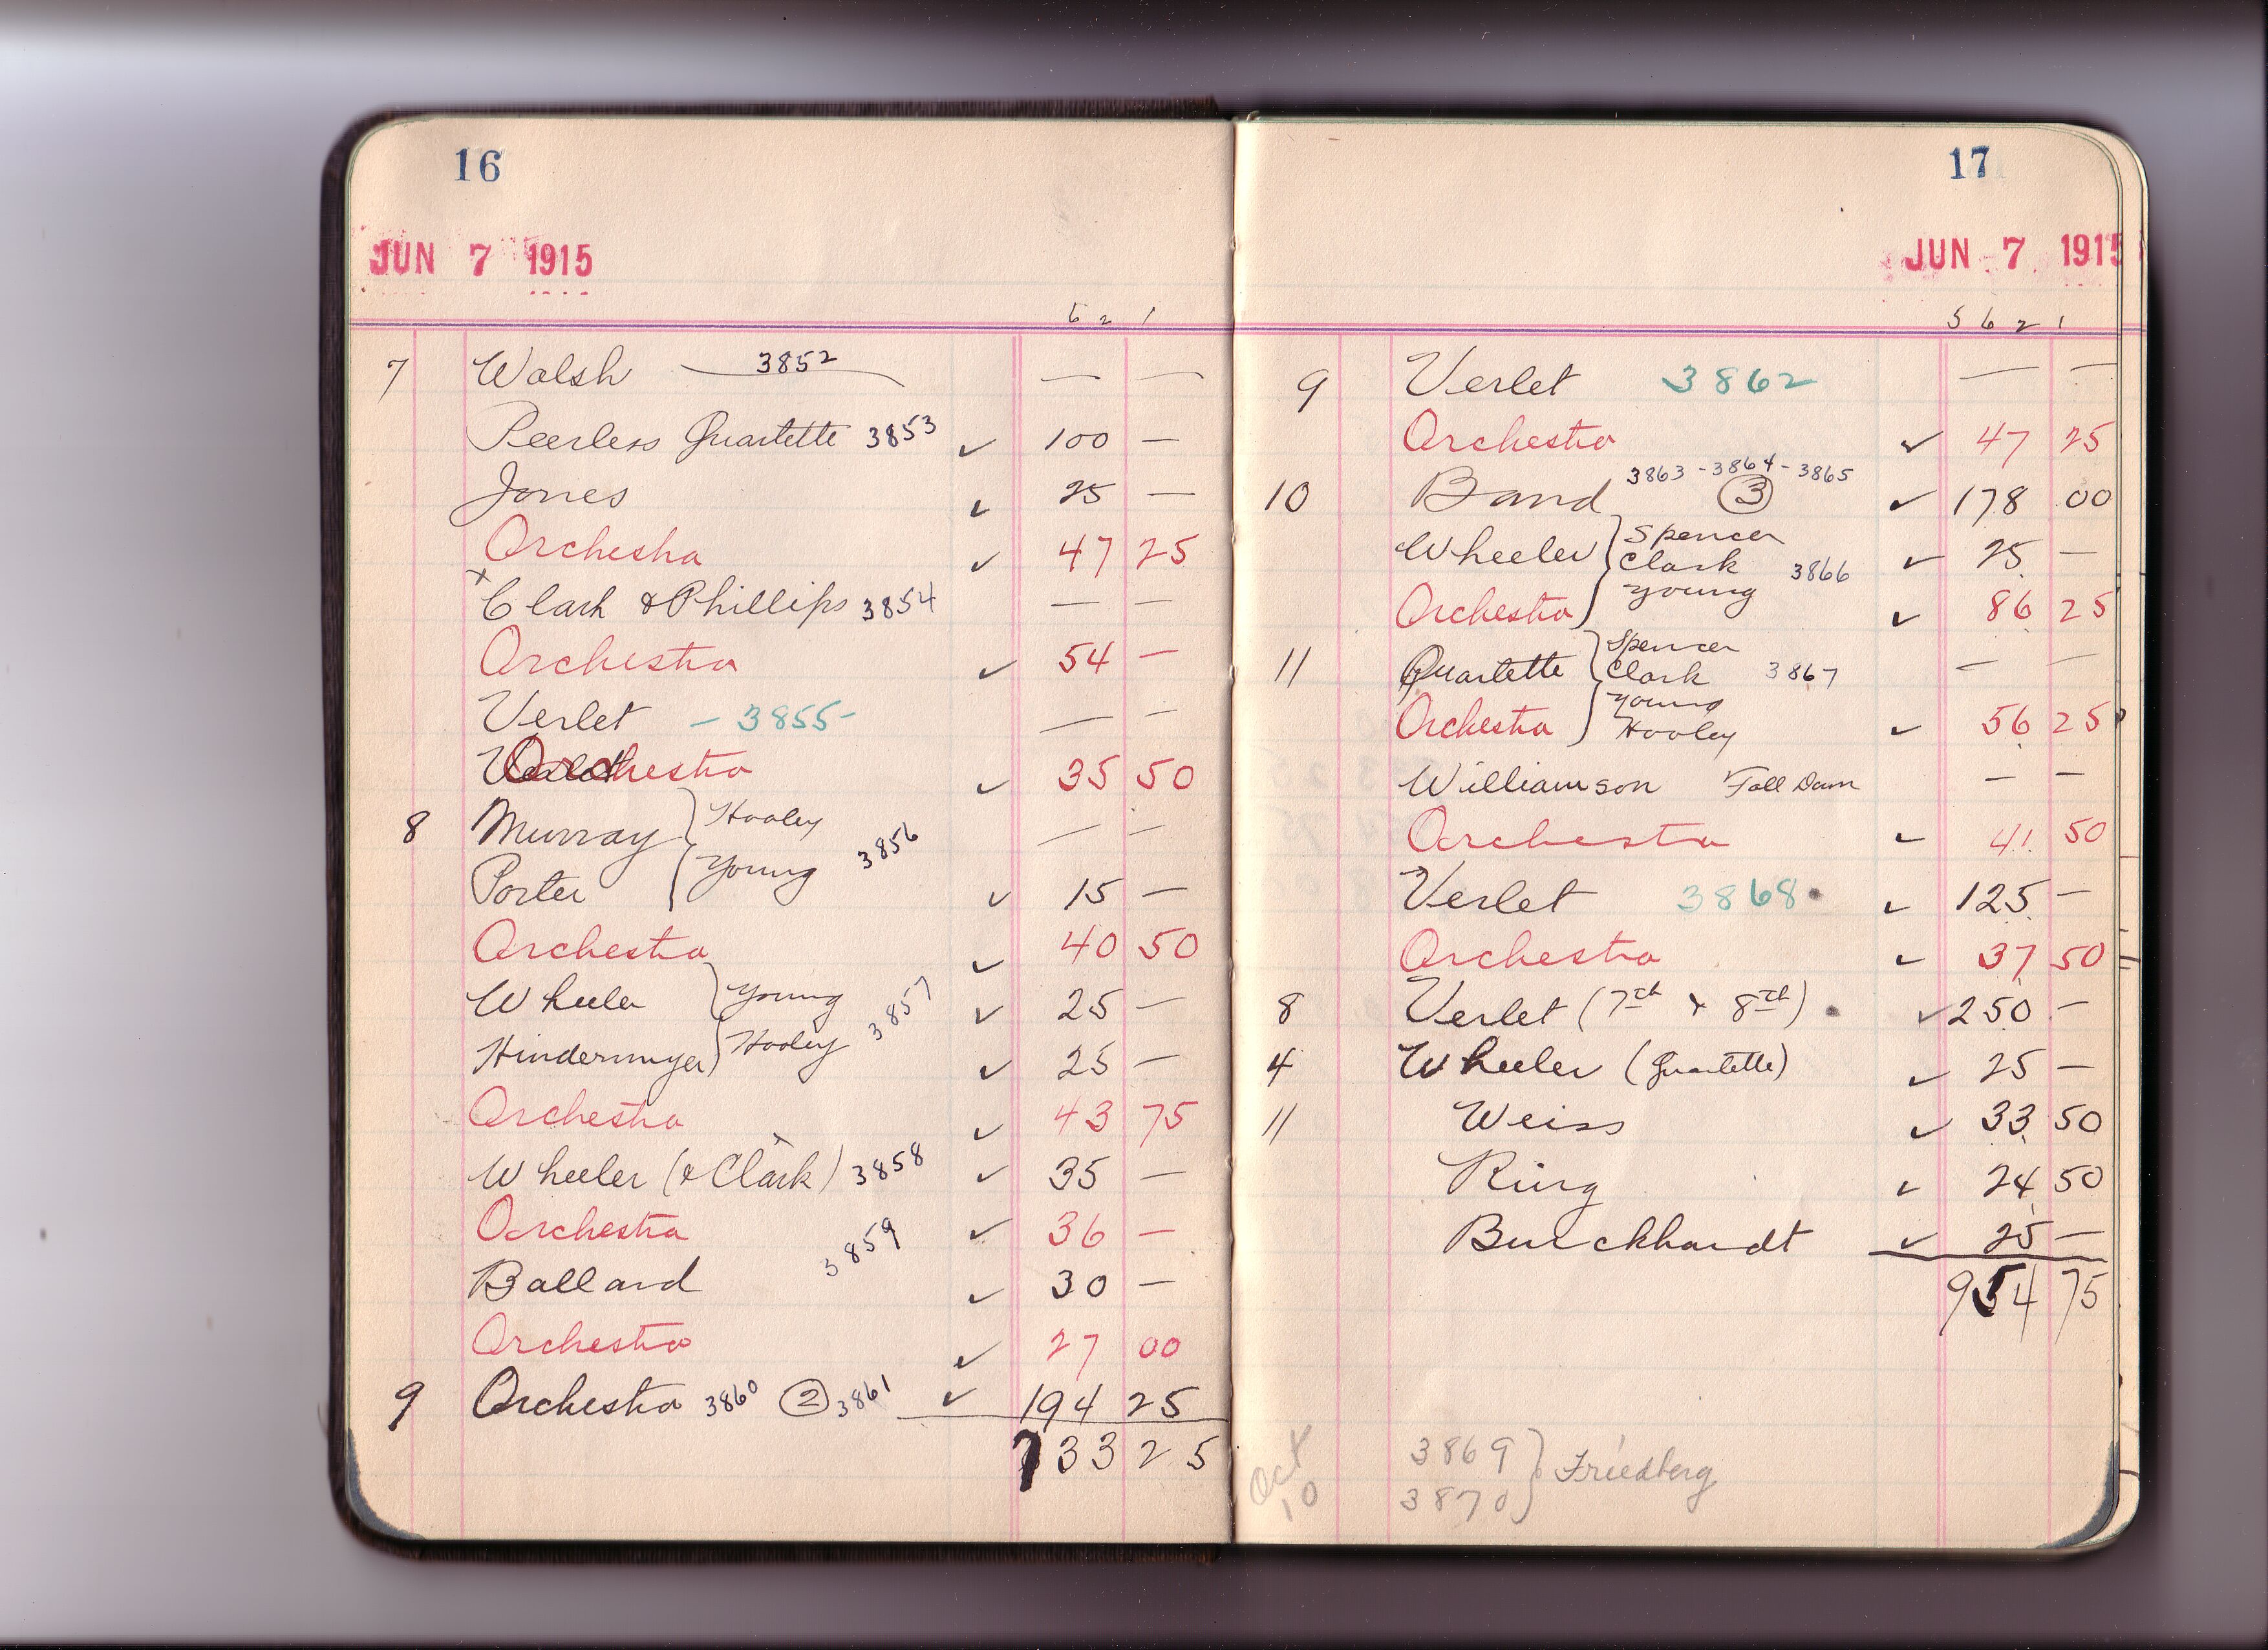 16
JUN 7 1915
6 2 1
7 Walsh 3852 — —
Peerless Quartette 3853 ✓ 100 —
Jones ✓ 25 —
Orchestra ✓ 47 25
x Clark & Phillips 3854 — —
Orchestra ✓ 54 —
Verlet - 3855 - — —
Orchestra ✓ 35 50
8 Murray } Hooley — —
Porter } Young 3856 ✓ 15 —
Orchestra ✓ 40 50
Wheeler } Young ✓ 25 —
Hindermyer } Hooley 3857 ✓ 25 —
Orchestra ✓ 43 75
Wheeler (& Clark) 3858 ✓ 35 —
Orchestra ✓ 36 —
Ballard 3859 ✓ 30 —
Orchestra ✓ 27 00
9 Orchestra 3860 (2) 3861 ✓ 194 25
733 25
17
JUN 7 1915
5 6 2 1
9 Verlet 3862 — —
Orchestra ✓ 47 25
3863 - 3864 - 3865
10 Band (3) ✓ 178 00
Spencer
Wheeler } Clark 3866 ✓ 25 —
Orchestra } Young ✓ 86 25
Spencer
11 Quartette } Clark 3867 — —
Young
Orchestra } Hooley ✓ 56 25
Williamson Fall Down — —
Orchestra ✓ 41 50
Verlet 3868 ✓ 125 —
Orchestra ✓ 37 50
8 Verlet (7th & 8th) ✓ 250 —
4 Wheeler (Quartette) ✓ 25 —
11 Weiss ✓ 33 50
Ring ✓ 24 50
Burckhardt ✓ 25 —
954 75
Oct 3869 } Friedberg
10 3870